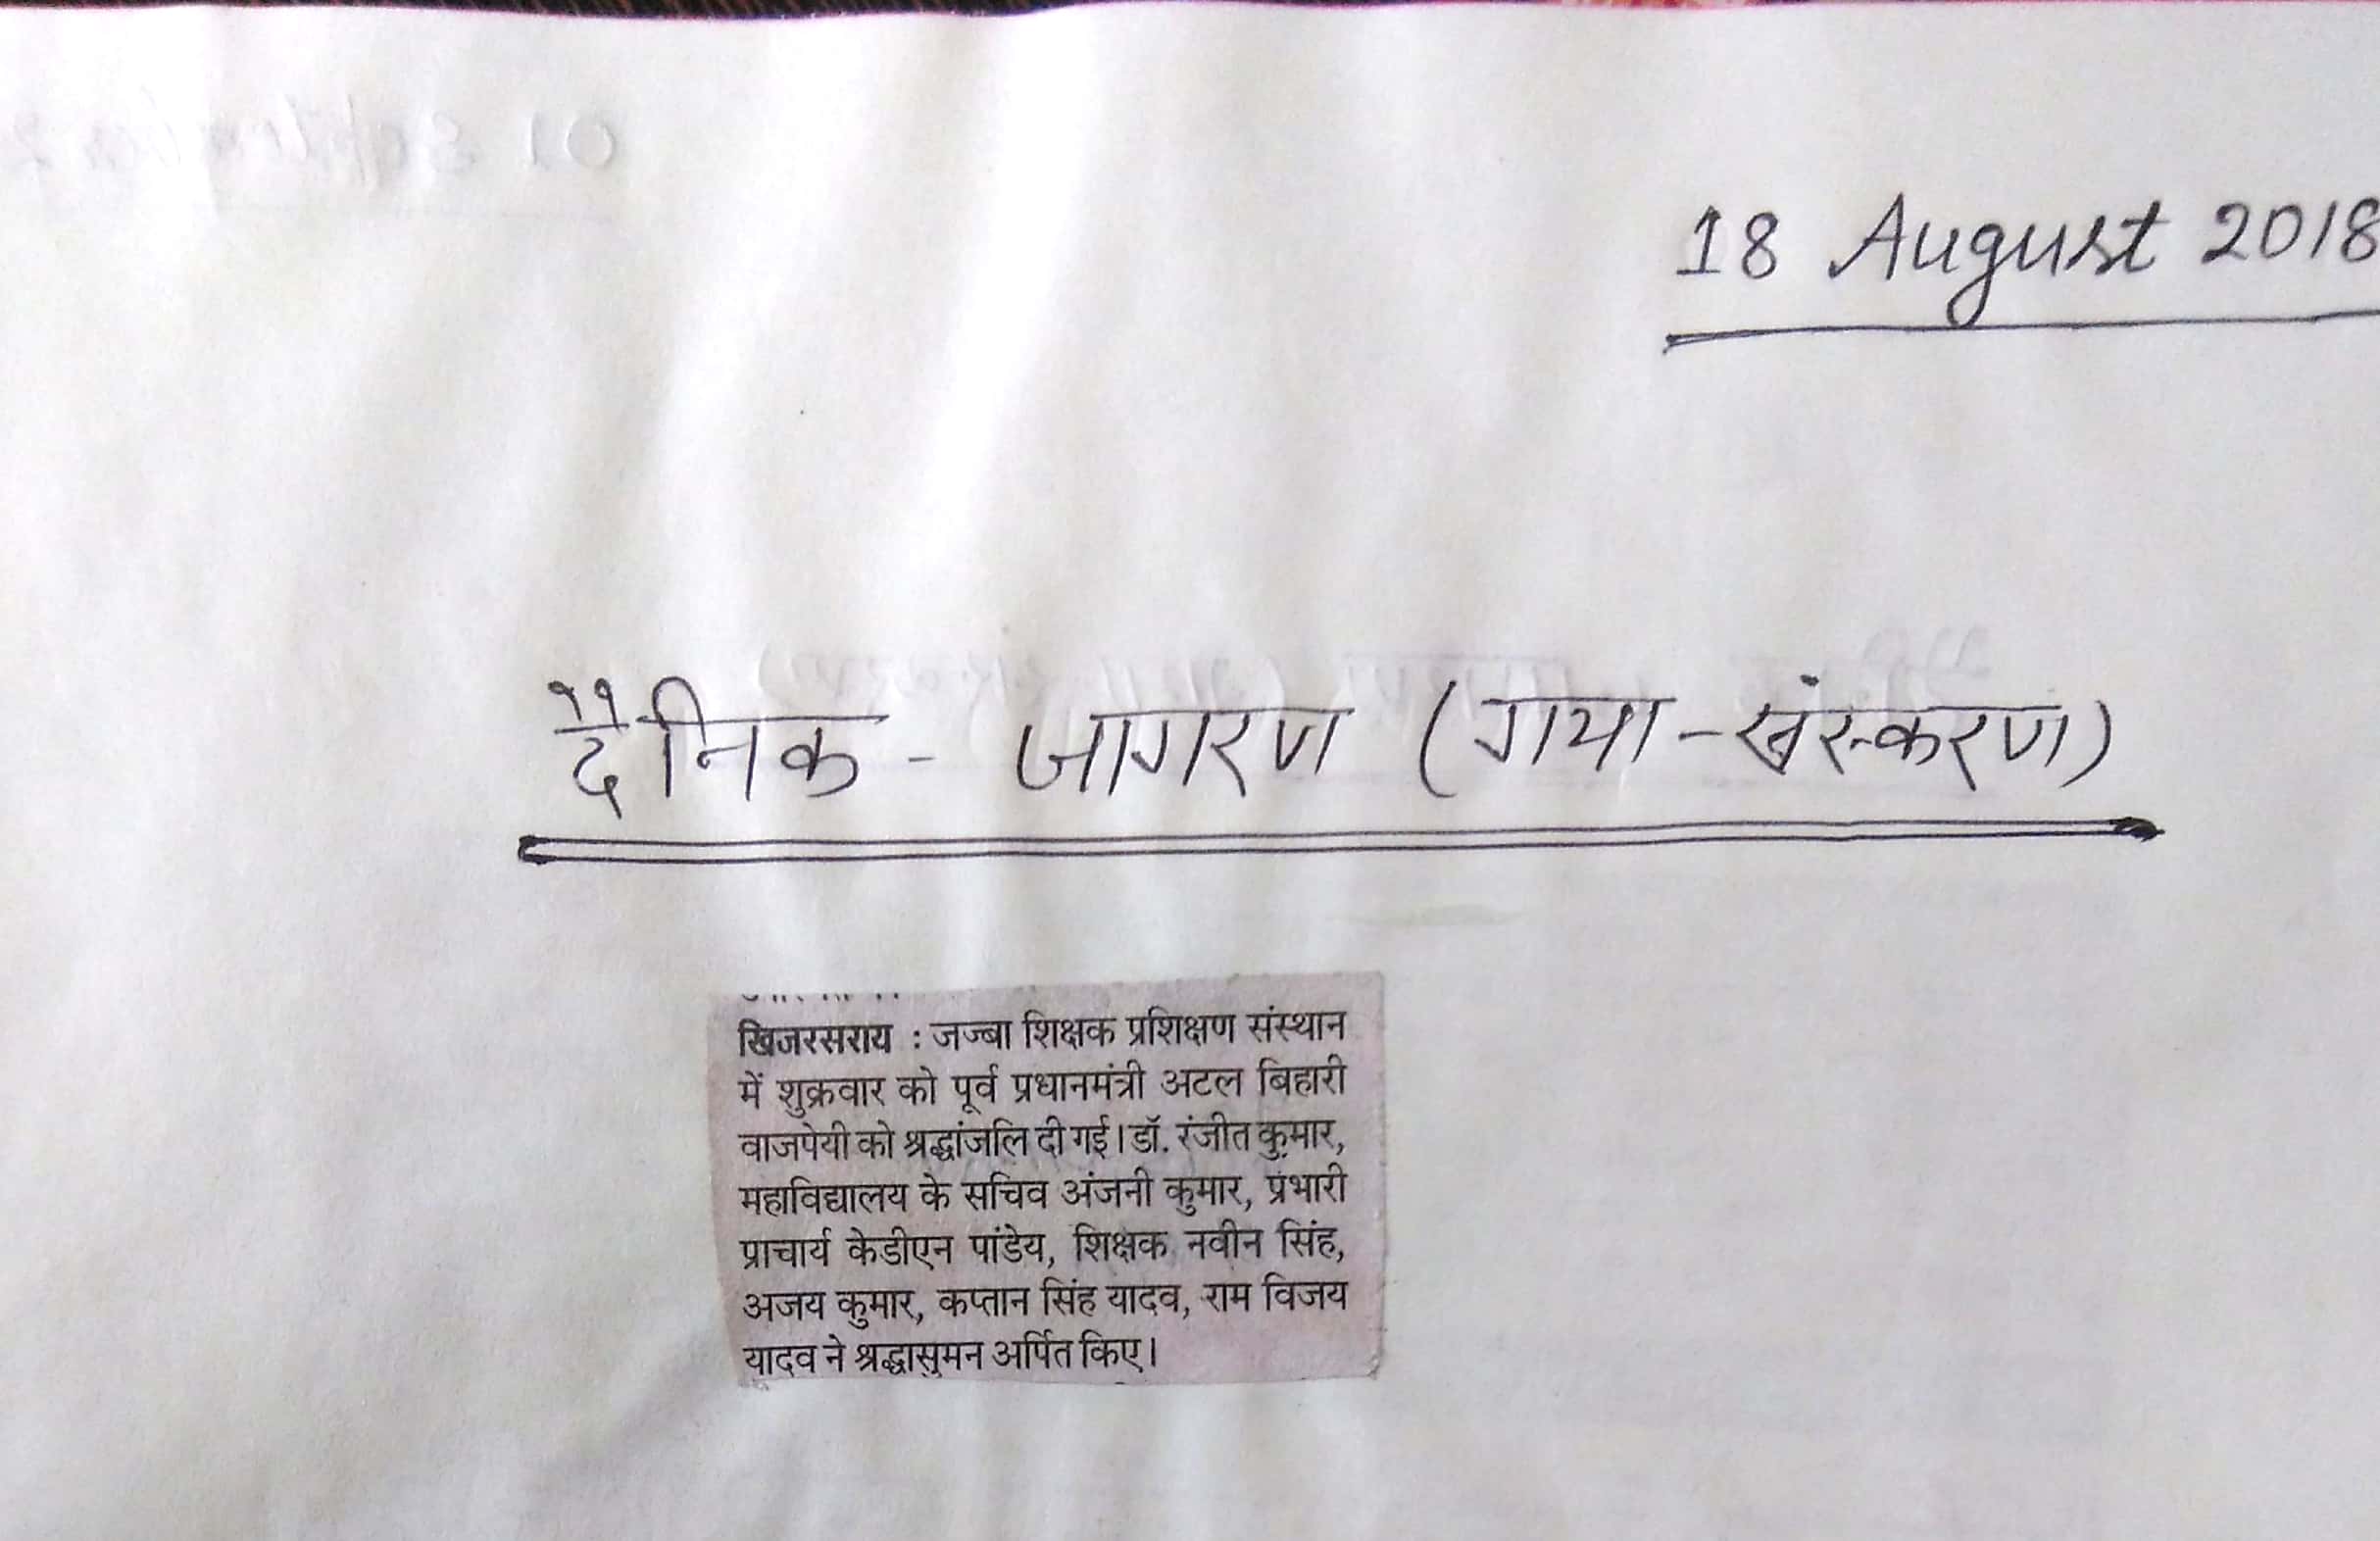 18 August 2018
दैनिक - जागरण (गया-संस्करण)
खिजरसराय : जज्बा शिक्षक प्रशिक्षण संस्थान
में शुक्रवार को पूर्व प्रधानमंत्री अटल बिहारी
वाजपेयी को श्रद्धांजलि दी गई। डॉ. रंजीत कुमार,
महाविद्यालय के सचिव अंजनी कुमार, प्रभारी
प्राचार्य केडीएन पांडेय, शिक्षक नवीन सिंह,
अजय कुमार, कप्तान सिंह यादव, राम विजय
यादव ने श्रद्धासुमन अर्पित किए।